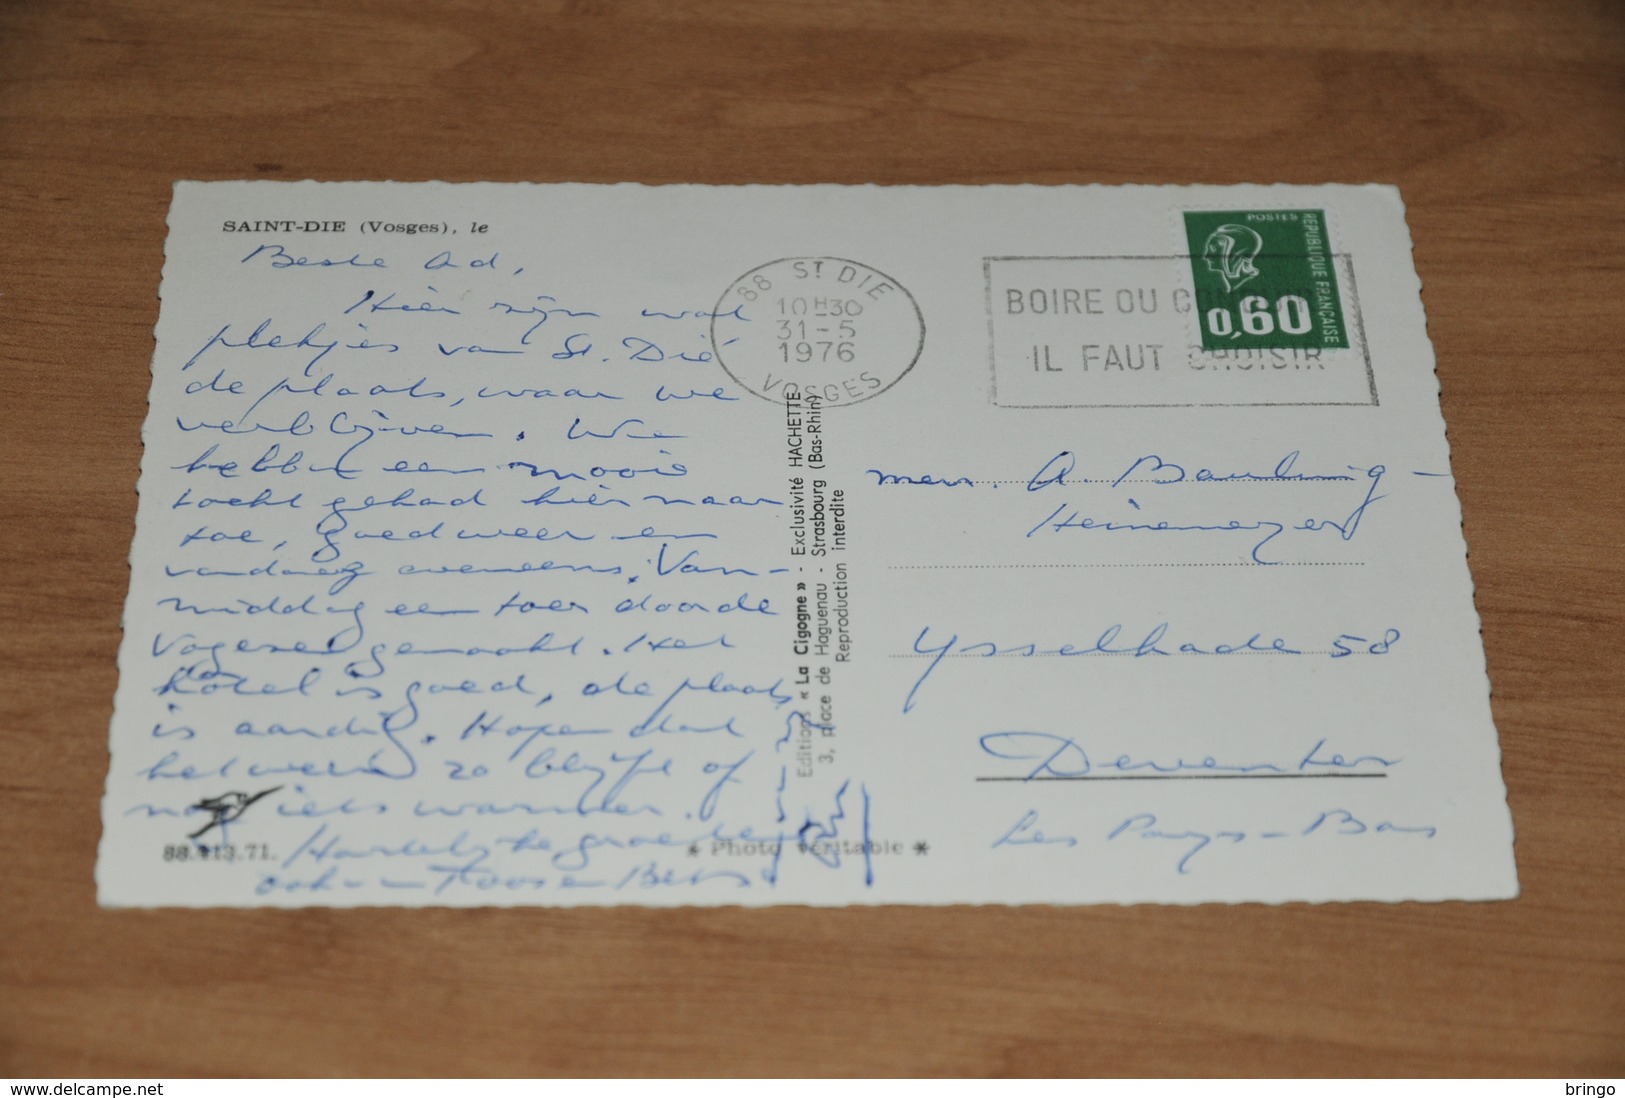 SAINT-DIE (Vosges), le
Beste Ad,
Hier zijn wat
plekjes van St. Dié
de plaats, waar we
verblijven. We
hebben een mooie
tocht gehad hier naar
toe, goed weer en
vandaag eveneens. Van-
middag een toer door de
Vogezen gemaakt. Het
hotel is goed, de plaats
is aardig. Hopen dat
het weer zo blijft of
nog iets warmer.
Hartelijke groeten
ook
88.413.71.
* Photo véritable *
Editions « La Cigogne » - Exclusivité HACHETTE
3, place de Haguenau - Strasbourg (Bas-Rhin)
Reproduction interdite
88 ST DIE
10H30
31-5
1976
VOSGES
BOIRE OU
IL FAUT CHOISIR
POSTES
REPUBLIQUE FRANÇAISE
0,60
A.
Ysselkade 58
Deventer
Les Pays-Bas
www.delcampe.net
bringo